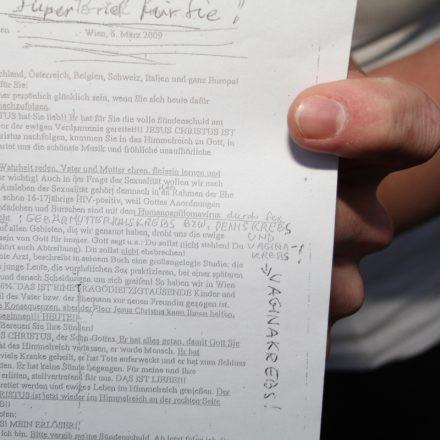 Superbrief für Sie!
en Wien, 6. März 2009
chland, Österreich, Belgien, Schweiz, Italien und ganz Europa!
für Sie:
ner persönlich glücklich sein, wenn Sie sich heute dafür
nachzufolgen.
STUS hat Sie lieb!! Er hat für Sie die volle Sündenschuld am
vor der ewigen Verdammnis gerettet!!! JESUS CHRISTUS IST
Christus nachfolgen, kommen Sie in das Himmelreich zu Gott, in
tet uns die schönste Musik und fröhliche unaufhörliche
Wahrheit reden, Vater und Mutter ehren, fleissig lernen und
r wichtig! Auch in der Frage der Sexualität wollen wir nach
Ausleben der Sexualität gehört demnach in den Rahmen der Ehe
schon 16-17jährige HIV-positiv, weil Gottes Anordnungen
Mädchen und Burschen sind mit dem Humanopapillomavirus durch Sex
GEBÄRMUTTERHALSKREBS BZW. PENISKREBS
UND
auf allen Gebieten, die wir genannt haben, droht uns die ewige
sein von Gott für immer. Gott sagt u.a.: Du sollst nicht stehlen! Du
VAGINA-
KREBS
hört auch Abtreibung). Du sollst nicht ehebrechen!
ie Arzt, beschreibt in seinem Buch eine großangelegte Studie: die
s junge Leute, die vorehelichen Sex praktizieren, bei einer späteren
und danach Scheidungen um sich greifen! So haben wir in Wien
6%. DAS IST EINE TRAGÖDIE! ZIGTAUSENDE Kinder und
il des Vater bzw. der Ehemann zur neuen Freundin gezogen ist.
Konsequenzen, aber der Herr Jesus Christus kann Ihnen helfen,
beginnen!!! HEUTE!!!
Bereuen Sie Ihre Sünden!
S CHRISTUS, der Sohn Gottes. Er hat alles getan, damit Gott Sie
at das Himmelreich verlassen, er wurde Mensch. Er hat
viele Kranke geheilt, er hat Tote auferweckt und er hat zum Schluss
den. Er hat keine Sünde begangen. Für meine und Ihre
erlitten, stellvertretend für uns. DAS IST LIEBE!!!
rettet werden und ewiges Leben im Himmelreich genießen. Der
CHRISTUS ist jetzt wieder im Himmelreich an der rechten Seite
SI MEIN ERLÖSER!
ich bin. Bitte vergib meine Sündenschuld. Ab jetzt folge ich dir
VAGINAKREBS!